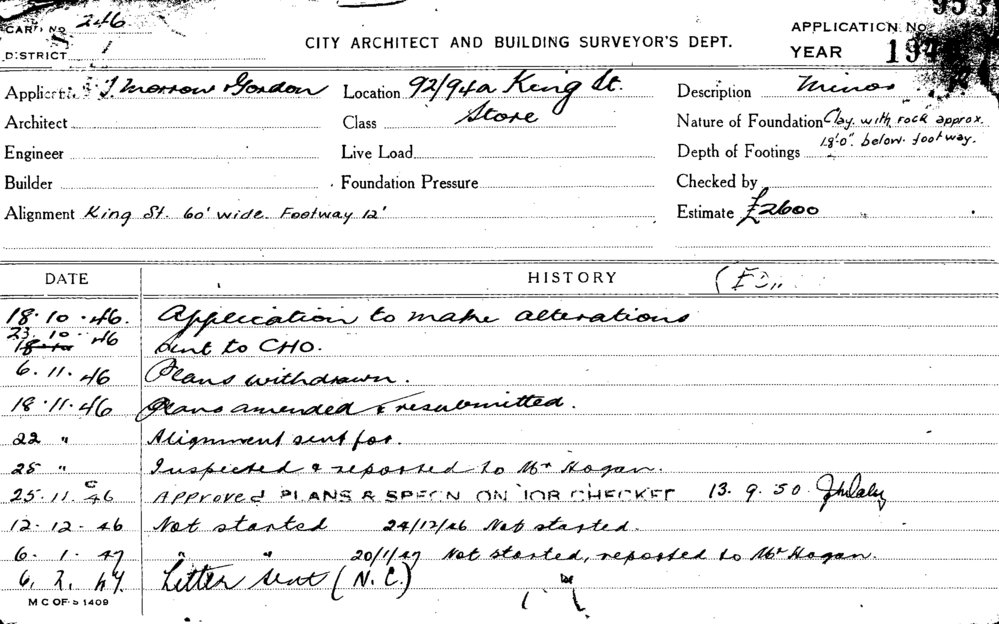 CARD No 246
DISTRICT 1
CITY ARCHITECT AND BUILDING SURVEYOR'S DEPT.
APPLICATION No
YEAR 194
Applicant J Morrow & Gordon
Location 92/94a King St.
Description Minor
Architect
Class Store
Nature of Foundation Clay with rock approx.
Engineer
Live Load
Depth of Footings 18'-0". below footway.
Builder
Foundation Pressure
Checked by
Alignment King St. 60' wide. Footway 12'
Estimate £2600
DATE HISTORY
18.10.46. Application to make alterations
23.10.46 Sent to CHO.
6.11.46 Plans withdrawn.
18.11.46 Plans amended & resubmitted.
22 " Alignment sent for.
25 " Inspected & reported to Mr Hogan.
25.11.46 Approved PLANS & SPECN ON JOB CHECKED 13.9.50 JHDaly
12.12.46 Not started 24/12/46 Not started.
6.1.47 " " 20/1/47 Not started, reported to Mr Hogan.
6.2.47. Letter sent (N.C.)
M C OF S 1409